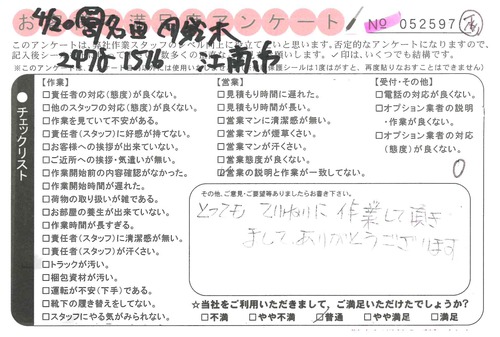 お　　満足　アンケート
No 052597
4/20
2476-1516 江南市
このアンケートは、弊社作業スタッフのレベル向上に役立て　いと思います。否定的なアンケートになりますので、
記入後シー　　　　数多くの　　　願いします。✓印は、いくつでも結構です。
※このアンケートは、　　　　保護シールは1度はがすと、再度貼りなおすことはできません)
チェックリスト
【作業】
□責任者の対応(態度)が良くない。
□他のスタッフの対応(態度)が良くない。
□作業を見ていて不安がある。
□責任者(スタッフ)に好感が持てない。
□お客様への挨拶が出来ていない。
□ご近所への挨拶・気遣いが無い。
□作業開始前の内容確認がなかった。
□作業開始時間が遅れた。
□荷物の取り扱いが雑である。
□お部屋の養生が出来ていない。
□作業時間が長すぎる。
□責任者(スタッフ)に清潔感が無い。
□責任者(スタッフ)が汗くさい。
□トラックが汚い。
□梱包資材が汚い。
□運転が不安(下手)である。
□靴下の履き替えをしてない。
□スタッフにやる気がみられない。
【営業】
□見積もり時間に遅れた。
□見積もり時間が長い。
□営業マンに清潔感が無い。
□営業マンが煙草くさい。
□営業マンが汗くさい。
□営業態度が良くない。
□営業の説明と作業が一致してない。
【受付・その他】
□電話の対応が良くない。
□オプション業者の説明
・作業が良くない。
□オプション業者の対応
(態度)が良くない。
0
その他、ご意見・ご要望等ありましたらお書き下さい。
とってもていねいに作業して頂き
まして、ありがとうございます
☆当社をご利用いただきまして、ご満足いただけたでしょうか?
□不満　□やや不満　□普通　□やや満足　□満足